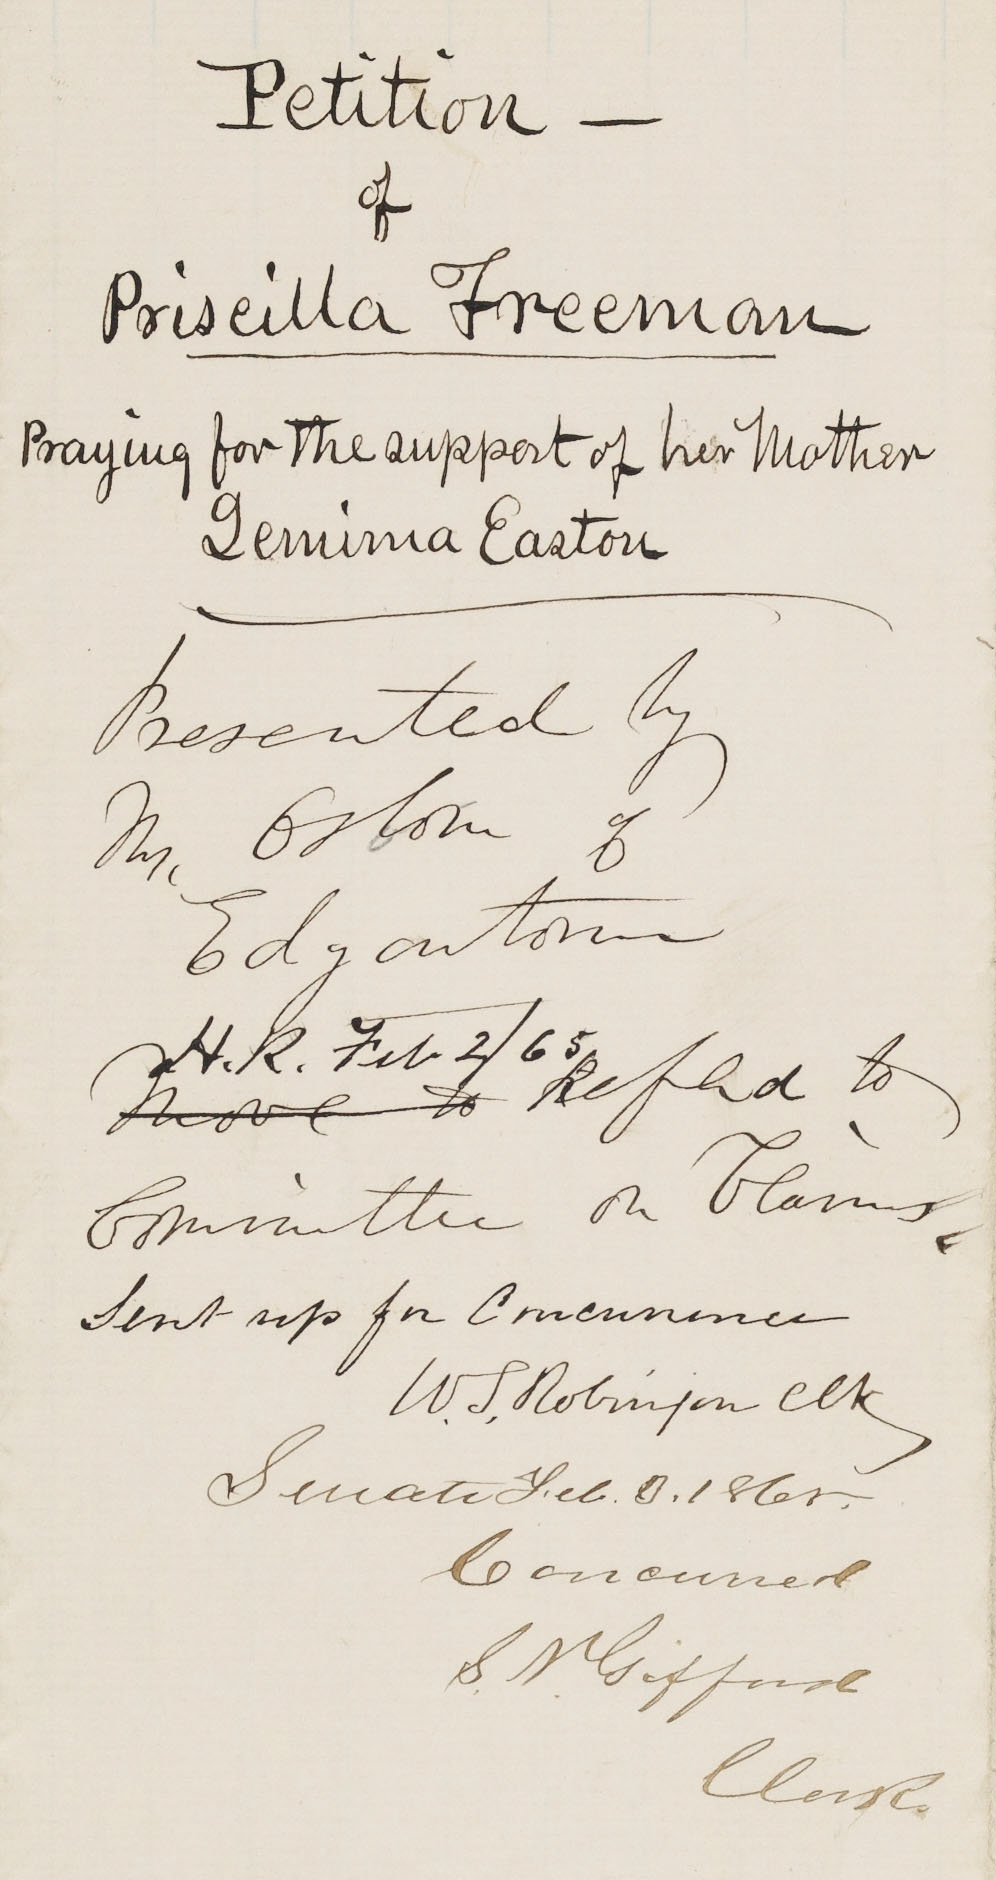 Petition —
of
Priscilla Freeman
Praying for the support of her Mother
Jemima Easton
Presented by
Mr. Osborn of
Edgartown
H.R. Feb 2/65
Move to Refd to
Committee on Claims
Sent up for Concurrence
W.S. Robinson Clk
Senate Feb. 3. 1865.
Concurred
S. N. Gifford
Clerk.